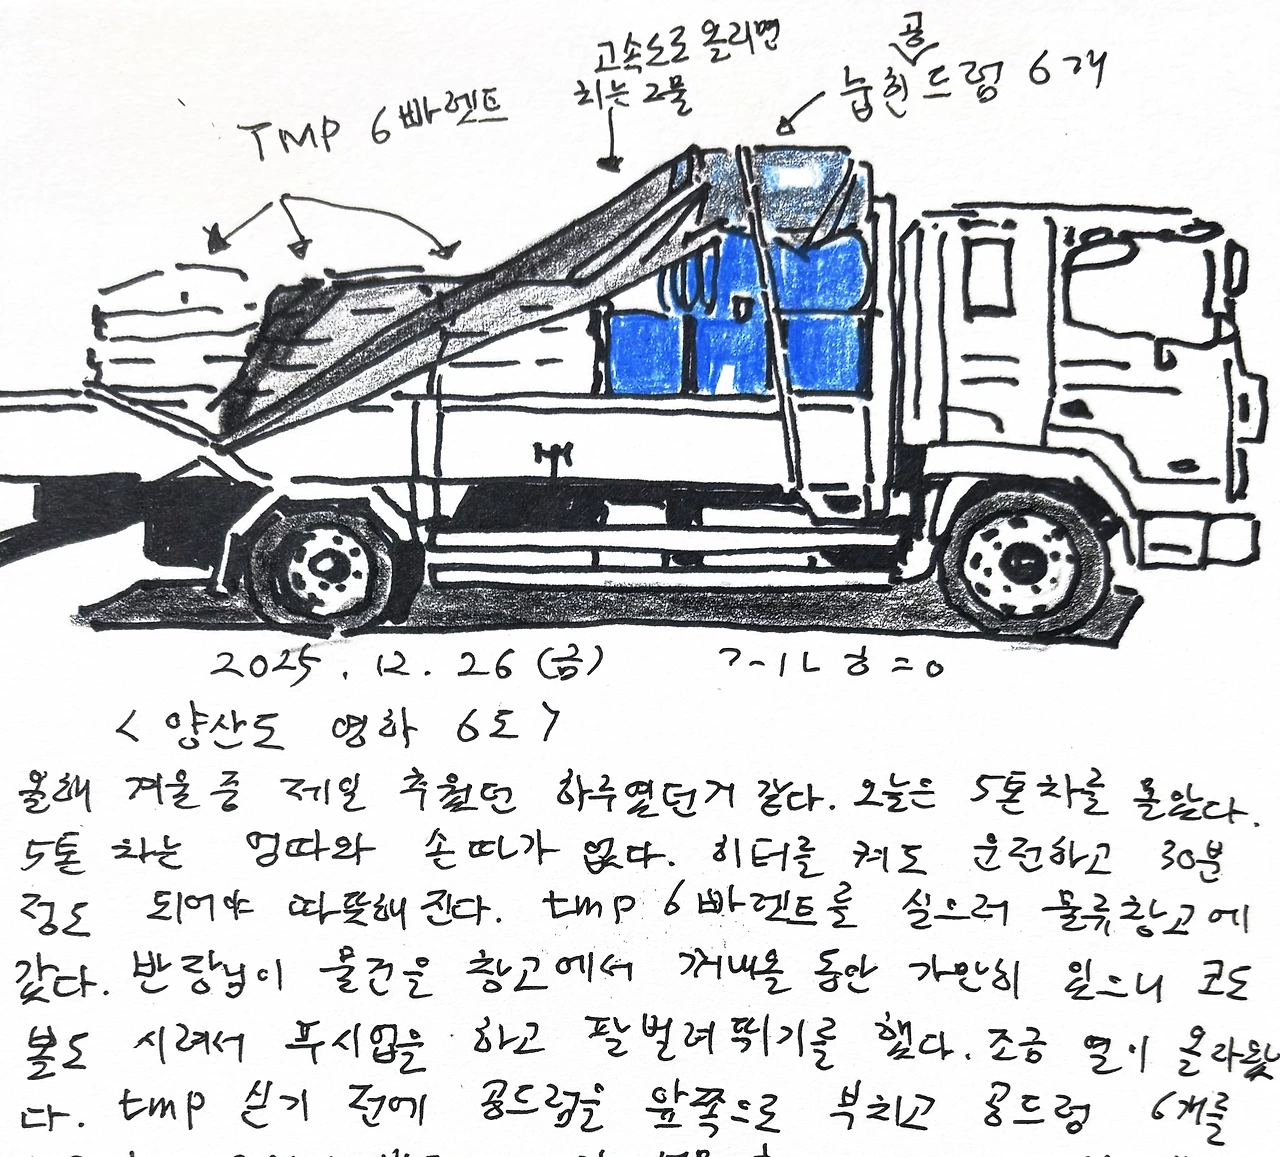 고속도로 올리면
치는 그물
공
눕힌 드럼 6개
TMP 6 빠렛트
2025. 12. 26 (금)
< 양산도 영하 6도 >
올해 겨울 중 제일 추웠던 하루였던거 같다. 오늘은 5톤차를 몰았다.
5톤 차는 엉따와 손따가 없다. 히터를 켜도 운전하고 30분
정도 되어야 따뜻해진다. tmp 6빠렛트를 실으러 물류창고에
갔다. 반장님이 물건을 창고에서 꺼내올 동안 가만히 있으니 코도
볼도 시려서 푸시업을 하고 팔벌려뛰기를 했다. 조금 열이 올라왔
다. tmp 싣기 전에 공드럼을 앞쪽으로 부치고 공드럼 6개를